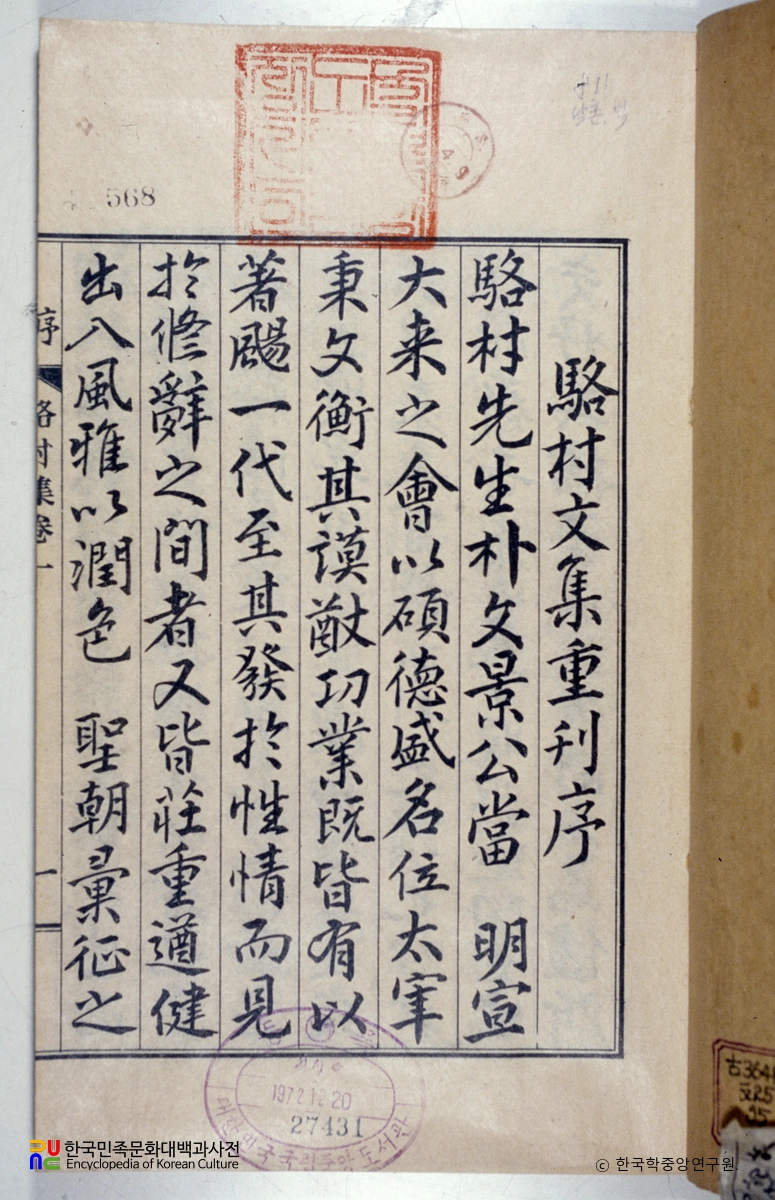 駱村文集重刊序
駱村先生朴文景公當 明宣
大来之會以碩德盛名位太宰
秉文衡其謨猷功業既皆有以
著颺一代至其發於性情而見
於修辭之間者又皆莊重遒健
出入風雅以潤色 聖朝彙征之
序
駱村集卷一
一
568
49
1972.12.20
27431
대한민국국립중앙도서관
古364
한국민족문화대백과사전
Encyclopedia of Korean Culture
© 한국학중앙연구원